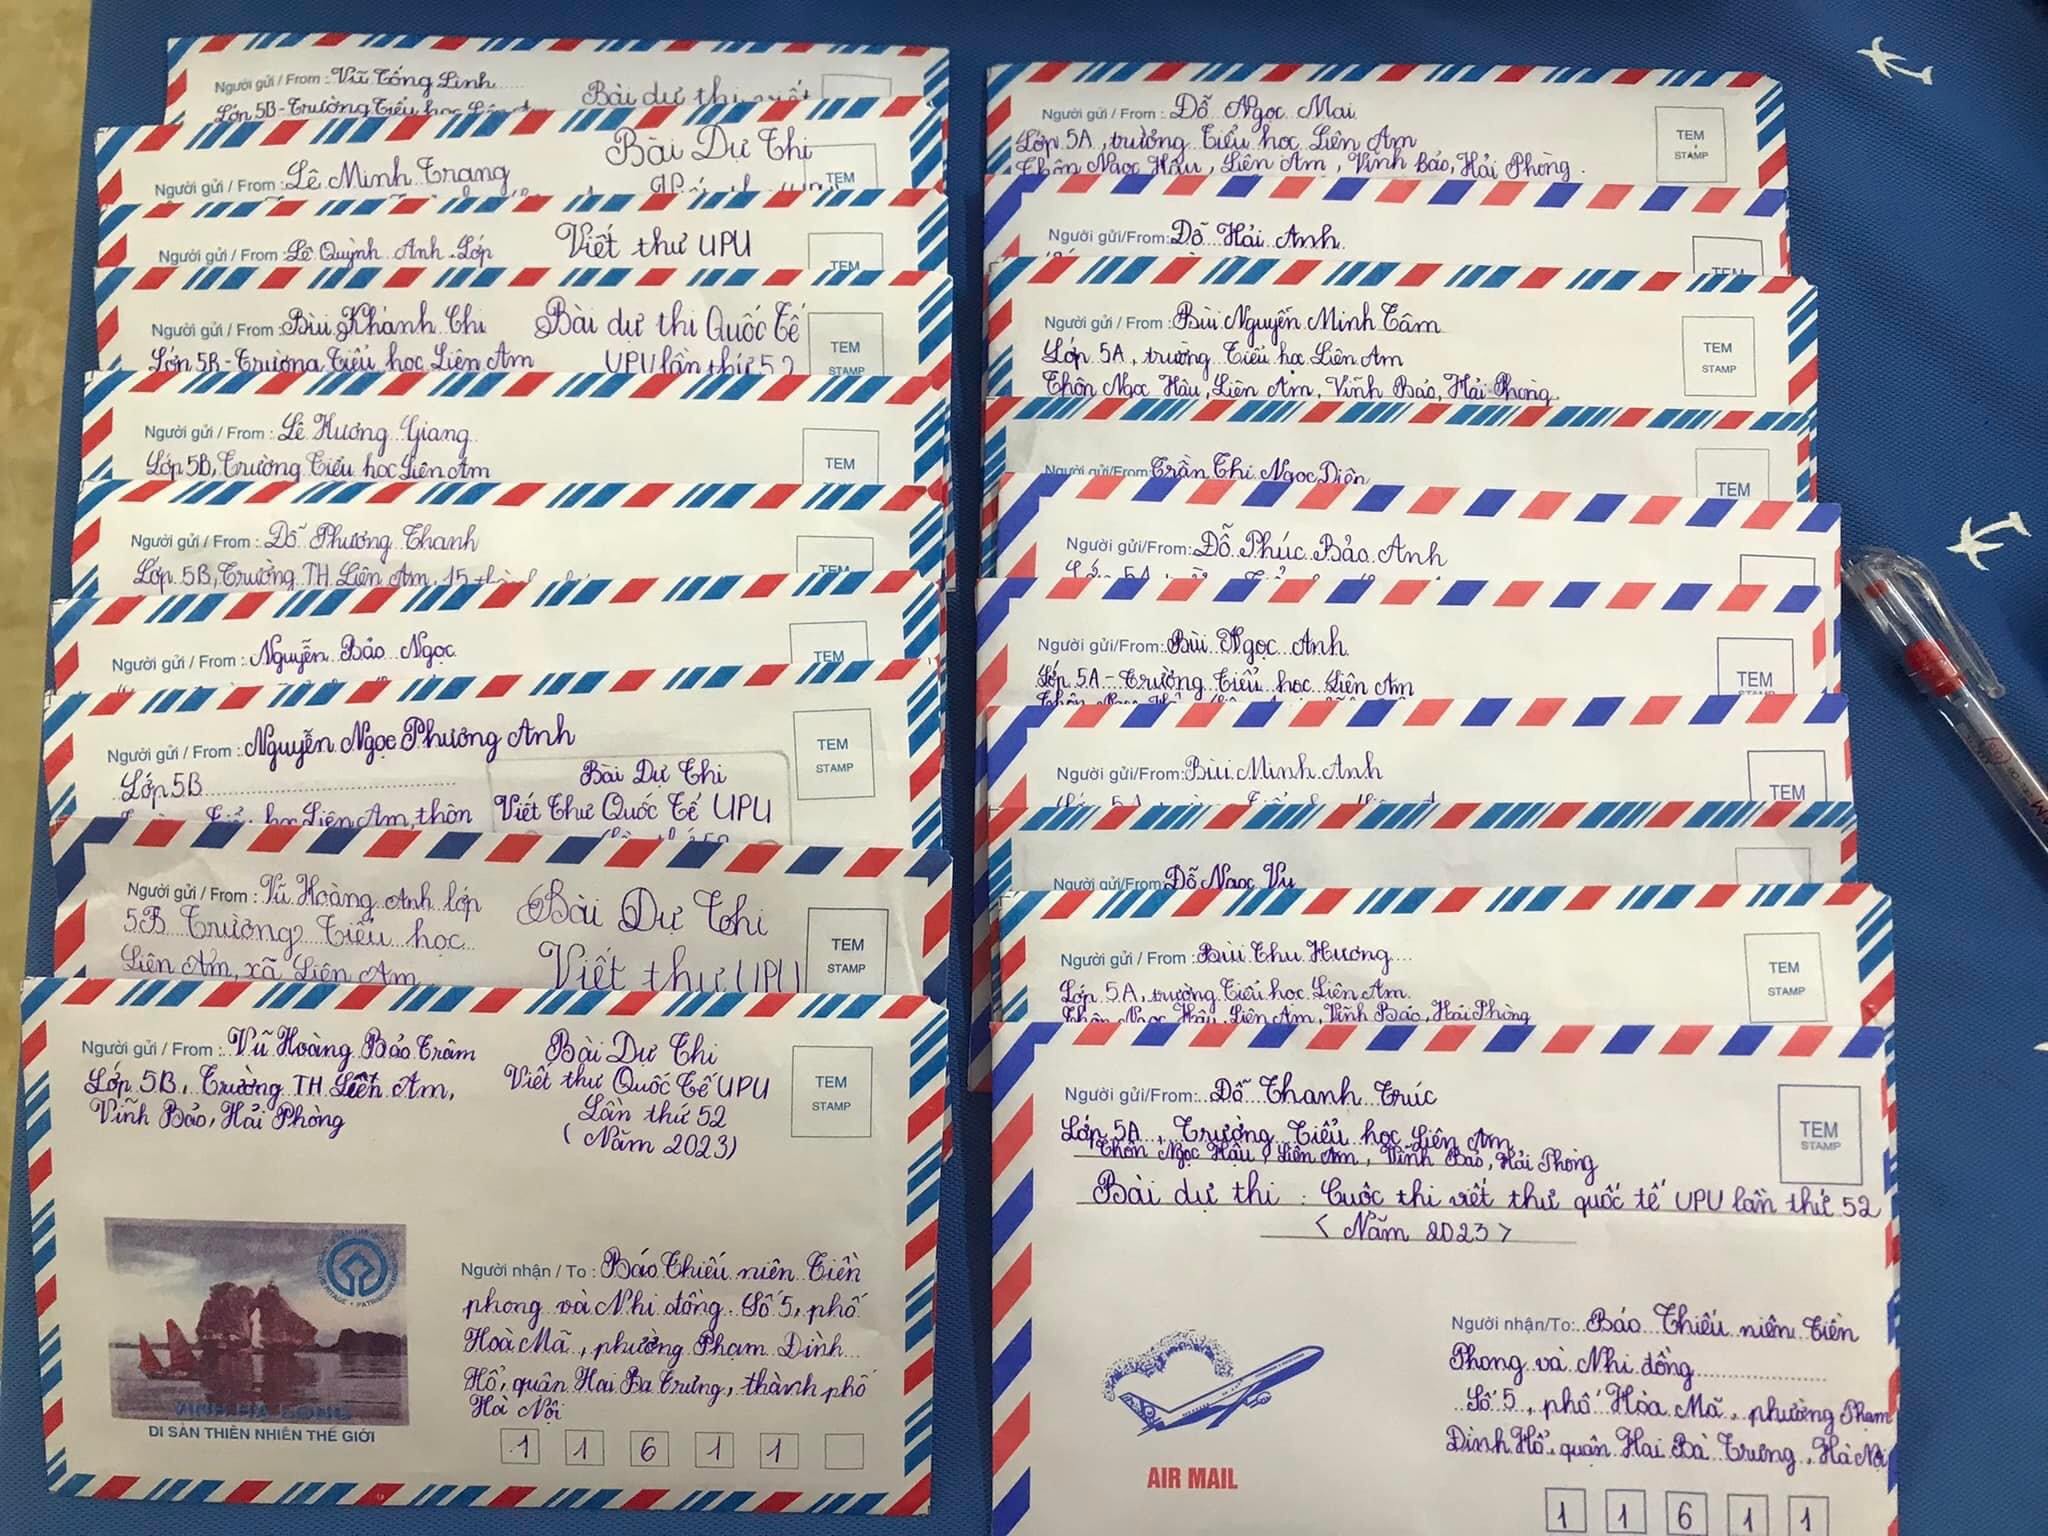 Người gửi / From : Vũ Tống Linh
Bài dự thi viết
Lớp 5B - Trường Tiểu học Liên Am
Người gửi / From : Lê Minh Trang
Bài Dự Thi
TEM
Người gửi / From : Lê Quỳnh Anh Lớp
Viết thư UPU
TEM
Người gửi / From : Bùi Khánh Chi
Bài dự thi Quốc Tế
Lớp 5B - Trường Tiểu học Liên Am
UPU lần thứ 52
TEM
STAMP
Người gửi / From : Lê Hương Giang
Lớp 5B, Trường Tiểu học Liên Am
TEM
Người gửi / From : Đỗ Phương Thanh
Lớp 5B, Trường TH Liên Am, 15
TEM
Người gửi / From : Nguyễn Bảo Ngọc
TEM
Người gửi / From : Nguyễn Ngọc Phương Anh
Lớp 5B
học Liên Am, thôn
Bài Dự Thi
Viết Thư Quốc Tế UPU
TEM
STAMP
Người gửi / From : Vũ Hoàng Anh lớp
5B Trường Tiểu học
Liên Am, xã Liên Am
Bài Dự Thi
Viết thư UPU
TEM
STAMP
Người gửi / From : Vũ Hoàng Bảo Trâm
Lớp 5B, Trường TH Liên Am,
Vĩnh Bảo, Hải Phòng
Bài Dự Thi
Viết thư Quốc Tế UPU
Lần thứ 52
( Năm 2023)
TEM
STAMP
VỊNH HẠ LONG
DI SẢN THIÊN NHIÊN THẾ GIỚI
Người nhận / To : Báo Thiếu niên Tiền
phong và Nhi đồng. Số 5, phố
Hoà Mã, phường Phạm Đình
Hổ, quận Hai Bà Trưng, thành phố
Hà Nội
1 1 6 1 1
Người gửi / From : Đỗ Ngọc Mai
Lớp 5A, trường Tiểu học Liên Am
Thôn Ngọc Hậu, Liên Am, Vĩnh Bảo, Hải Phòng.
TEM
STAMP
Người gửi/From: Đỗ Hải Anh
TEM
Người gửi / From : Bùi Nguyễn Minh Tâm
Lớp 5A, trường Tiểu học Liên Am
Thôn Ngọc Hậu, Liên Am, Vĩnh Bảo, Hải Phòng.
TEM
STAMP
Người gửi/From: Trần Thị Ngọc Diên
TEM
Người gửi/From: Đỗ Phúc Bảo Anh
Người gửi/From: Bùi Ngọc Anh
Lớp 5A - Trường Tiểu học Liên Am
TEM
STAMP
Người gửi/From: Bùi Minh Anh
TEM
Người gửi/From: Đỗ Ngọc Vụ
Người gửi / From : Bùi Thu Hương
Lớp 5A, trường Tiểu học Liên Am.
Thôn Ngọc Hậu, Liên Am, Vĩnh Bảo, Hải Phòng
TEM
STAMP
Người gửi/From: Đỗ Thanh Trúc
Lớp 5A, Trường Tiểu học Liên Am
Thôn Ngọc Hậu, Liên Am, Vĩnh Bảo, Hải Phòng
Bài dự thi : Cuộc thi viết thư quốc tế UPU lần thứ 52
< Năm 2023 >
TEM
STAMP
AIR MAIL
Người nhận/To: Báo Thiếu niên Tiền
Phong và Nhi đồng
Số 5, phố Hòa Mã, phường Phạm
Đình Hổ, quận Hai Bà Trưng, Hà Nội
1 1 6 1 1